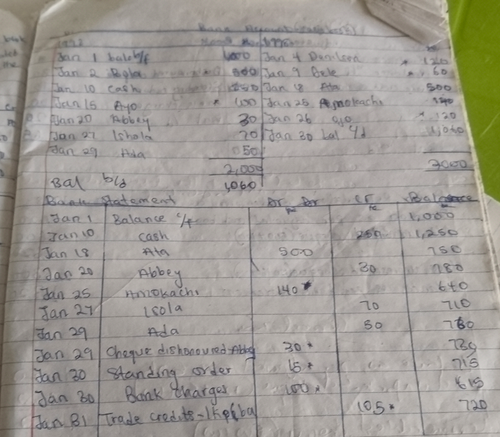 Bank Account (cash book)
1998
Jan 1 bal b/f 1,000 Jan 4 Damilora * 120
Jan 2 Bola * 500 Jan 9 Dele * 60
Jan 10 cash 250 Jan 18 Ata 500
Jan 15 Ayo * 100 Jan 25 Amokachi 140
Jan 20 Abbey 30 Jan 26 * 120
Jan 27 Ishola 70 Jan 30 bal c/d 1,060
Jan 29 Ada 50
2,000 2000
Bal b/d 1,060
Bank Statement Dr Cr Balance
Jan 1 Balance c/f 1,000
Jan 10 Cash 250 1,250
Jan 18 Ata 500 750
Jan 20 Abbey 30 780
Jan 25 Amokachi 140 * 640
Jan 27 Isola 70 710
Jan 29 Ada 50 760
Jan 29 Cheque dishonoured-Abbey 30 * 730
Jan 30 Standing order 15 * 715
Jan 30 Bank charges 100 * 615
Jan 31 Trade credits - 105 * 720